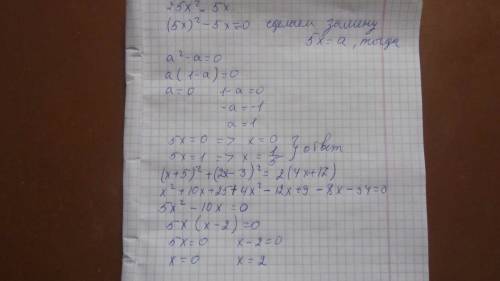 25x² = 5x
(5x)² - 5x = 0 сделаем замену
5x = a, тогда
a² - a = 0
a(1 - a) = 0
a = 0 1 - a = 0
-a = -1
a = 1
5x = 0 => x = 0
5x = 1 => x = 1/5 } ответ
(x+5)² + (2x-3)² = 2(4x+17)
x² + 10x + 25 + 4x² - 12x + 9 - 8x - 34 = 0
5x² - 10x = 0
5x(x - 2) = 0
5x = 0 x - 2 = 0
x = 0 x = 2